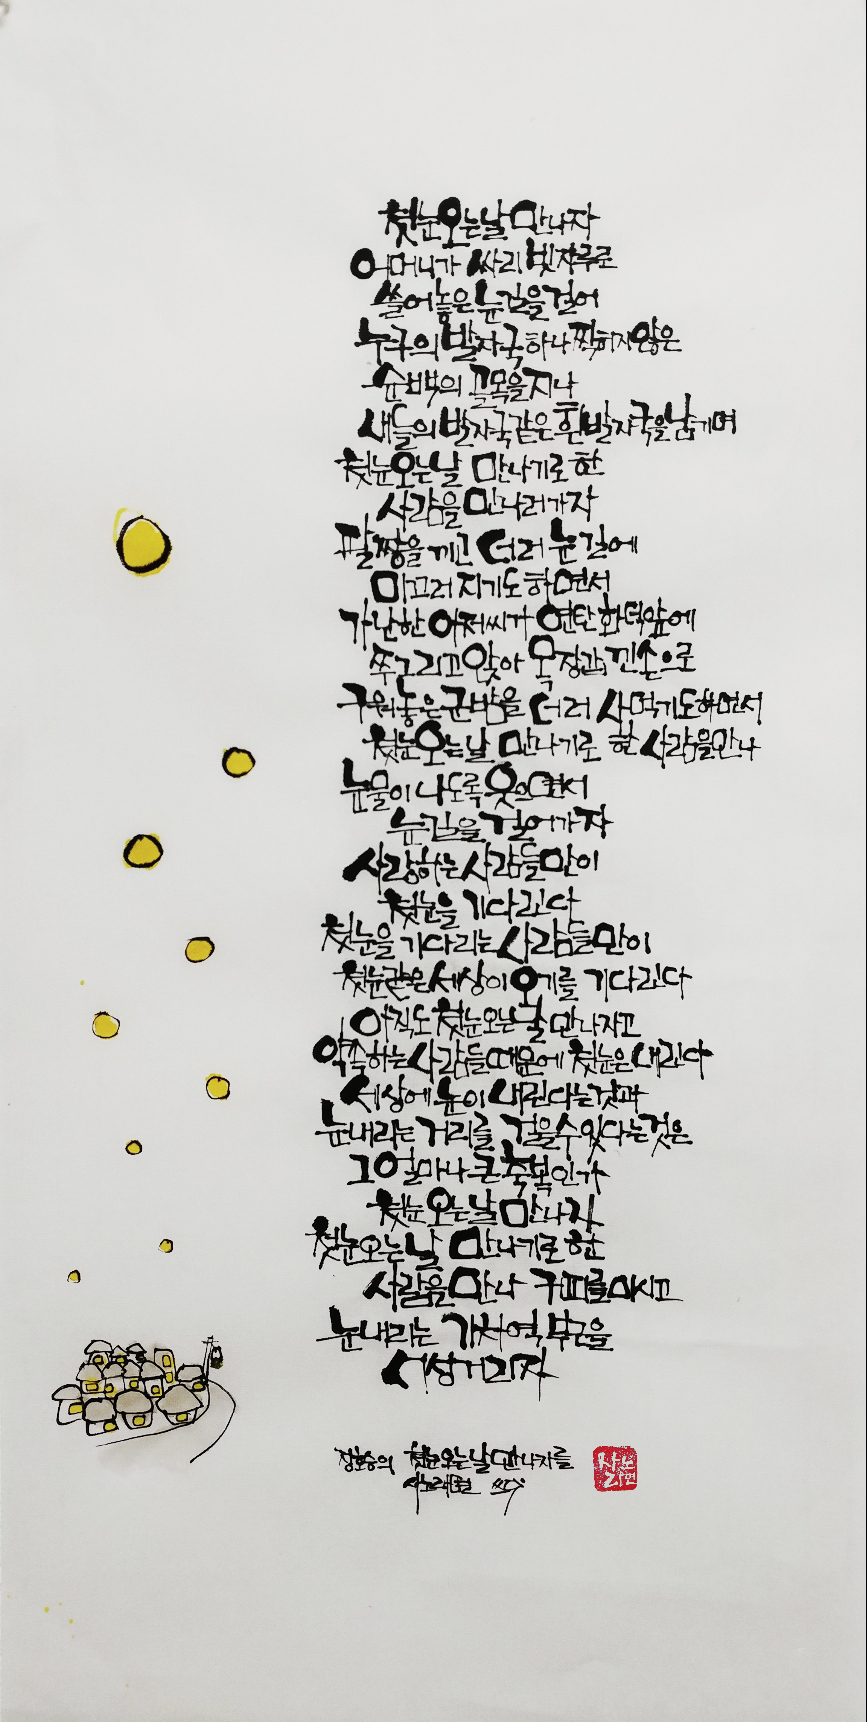 첫눈오는날 만나자
어머니가 싸리 빗자루로
쓸어놓은 눈길을 걸어
누구의 발자국 하나 찍히지않은
순백의 골목을 지나
새들의 발자국같은 흰 발자국을 남기며
첫눈오는날 만나기로 한
사람을 만나러가자
팔짱을 끼고 더러 눈길에
미끄러지기도 하면서
가난한 아저씨가 연탄 화덕앞에
쭈그리고 앉아 목장갑 낀 손으로
구워놓은 군밤을 더러 사먹기도하면서
첫눈오는날 만나기로 한 사람을만나
눈물이 나도록 웃으면서
눈길을 걸어가자
사랑하는 사람들만이
첫눈을 기다린다
첫눈을 기다리는 사람들만이
첫눈같은 세상이 오기를 기다린다
아직도 첫눈오는날 만나자고
약속하는 사람들때문에 첫눈은 내린다
세상에 눈이 내린다는것과
눈내리는 거리를 걸을수있다는것은
그 얼마나 큰 축복인가
첫눈오는날 만나자
첫눈오는날 만나기로한
사람을 만나 커피를마시고
눈내리는 기차역 부근을
서성거리자
정호승의 첫눈오는날만나자를
쓰다